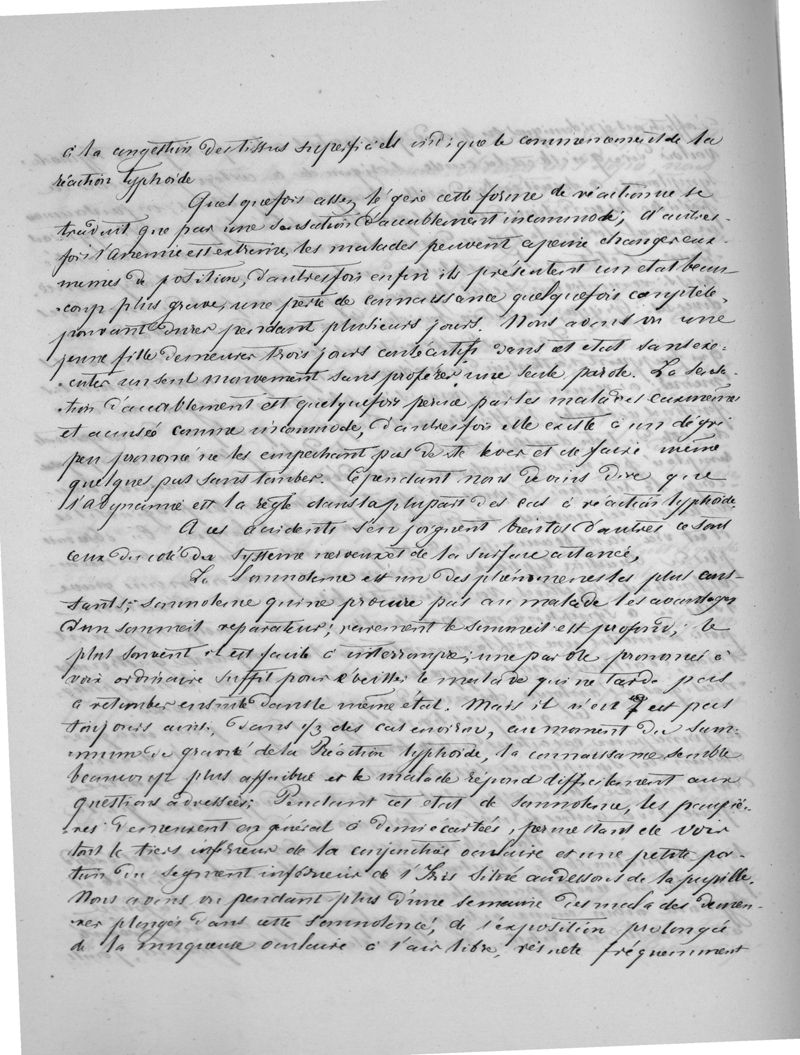 à la congestion des tissus superficiels indique le commencement de la
réaction typhoïde
Quelquefois assez légère cette forme de réaction ne se
traduit que par une sensation d'accablement incommode; d'autres-
fois l'Anemie est extrême, les malades peuvent a peine changer eux-
mêmes de position, d'autres fois enfin ils présentent un etat beau-
coup plus grave, une perte de connaissance quelquefois complète,
pouvant durer pendant plusieurs jours. Nous avons vu une
jeune fille demeurer trois jours consécutifs dans cet etat sans exé-
cuter un seul mouvement sans proférer une seule parole. La sensa-
tion d'accablement est quelquefois perçue par les malades eux mêmes
et accusée comme incommode, d'autres fois elle existe à un dégré
peu prononcé ne les empechant pas de se lever et de faire même
quelques pas sans tomber. Cependant nous devons dire que
l'adynamie est la règle dans la plupart des cas à réaction typhoïde.
A ces accidents s'en joignent bientot d'autres ce sont
ceux du coté du système nerveux et de la surface cutanée,
La Somnolence est un des phénomenes les plus cons-
tants; somnolence qui ne procure pas au malade les avantages
d'un sommeil réparateur; rarement le sommeil est profond, le
plus souvent il est facile à interrompre; une parole prononcée à
voix ordinaire suffit pour éveiller le malade qui ne tarde pas
a retomber ensuite dans le même état. Mais il n'en est pas
toujours ainsi, dans 1/3 des cas environ, au moment du sum-
mum de gravité de la Réaction typhoïde, la connaissance semble
beaucoup plus affaiblie et le malade répond difficilement aux
questions adressées; Pendant cet etat de somnolence, les paupiè-
res demeurent en général à demi écartées, permettant de voir
tout le tiers inférieur de la conjonctive oculaire et une petite por-
tion du segment inférieur de l'Iris situé au dessous de la pupille.
Nous avons vu pendant plus d'une semaine des malades demeu-
rer plongés dans cette somnolence, de l'exposition prolongée
de la muqueuse oculaire à l'air libre, résulte fréquemment